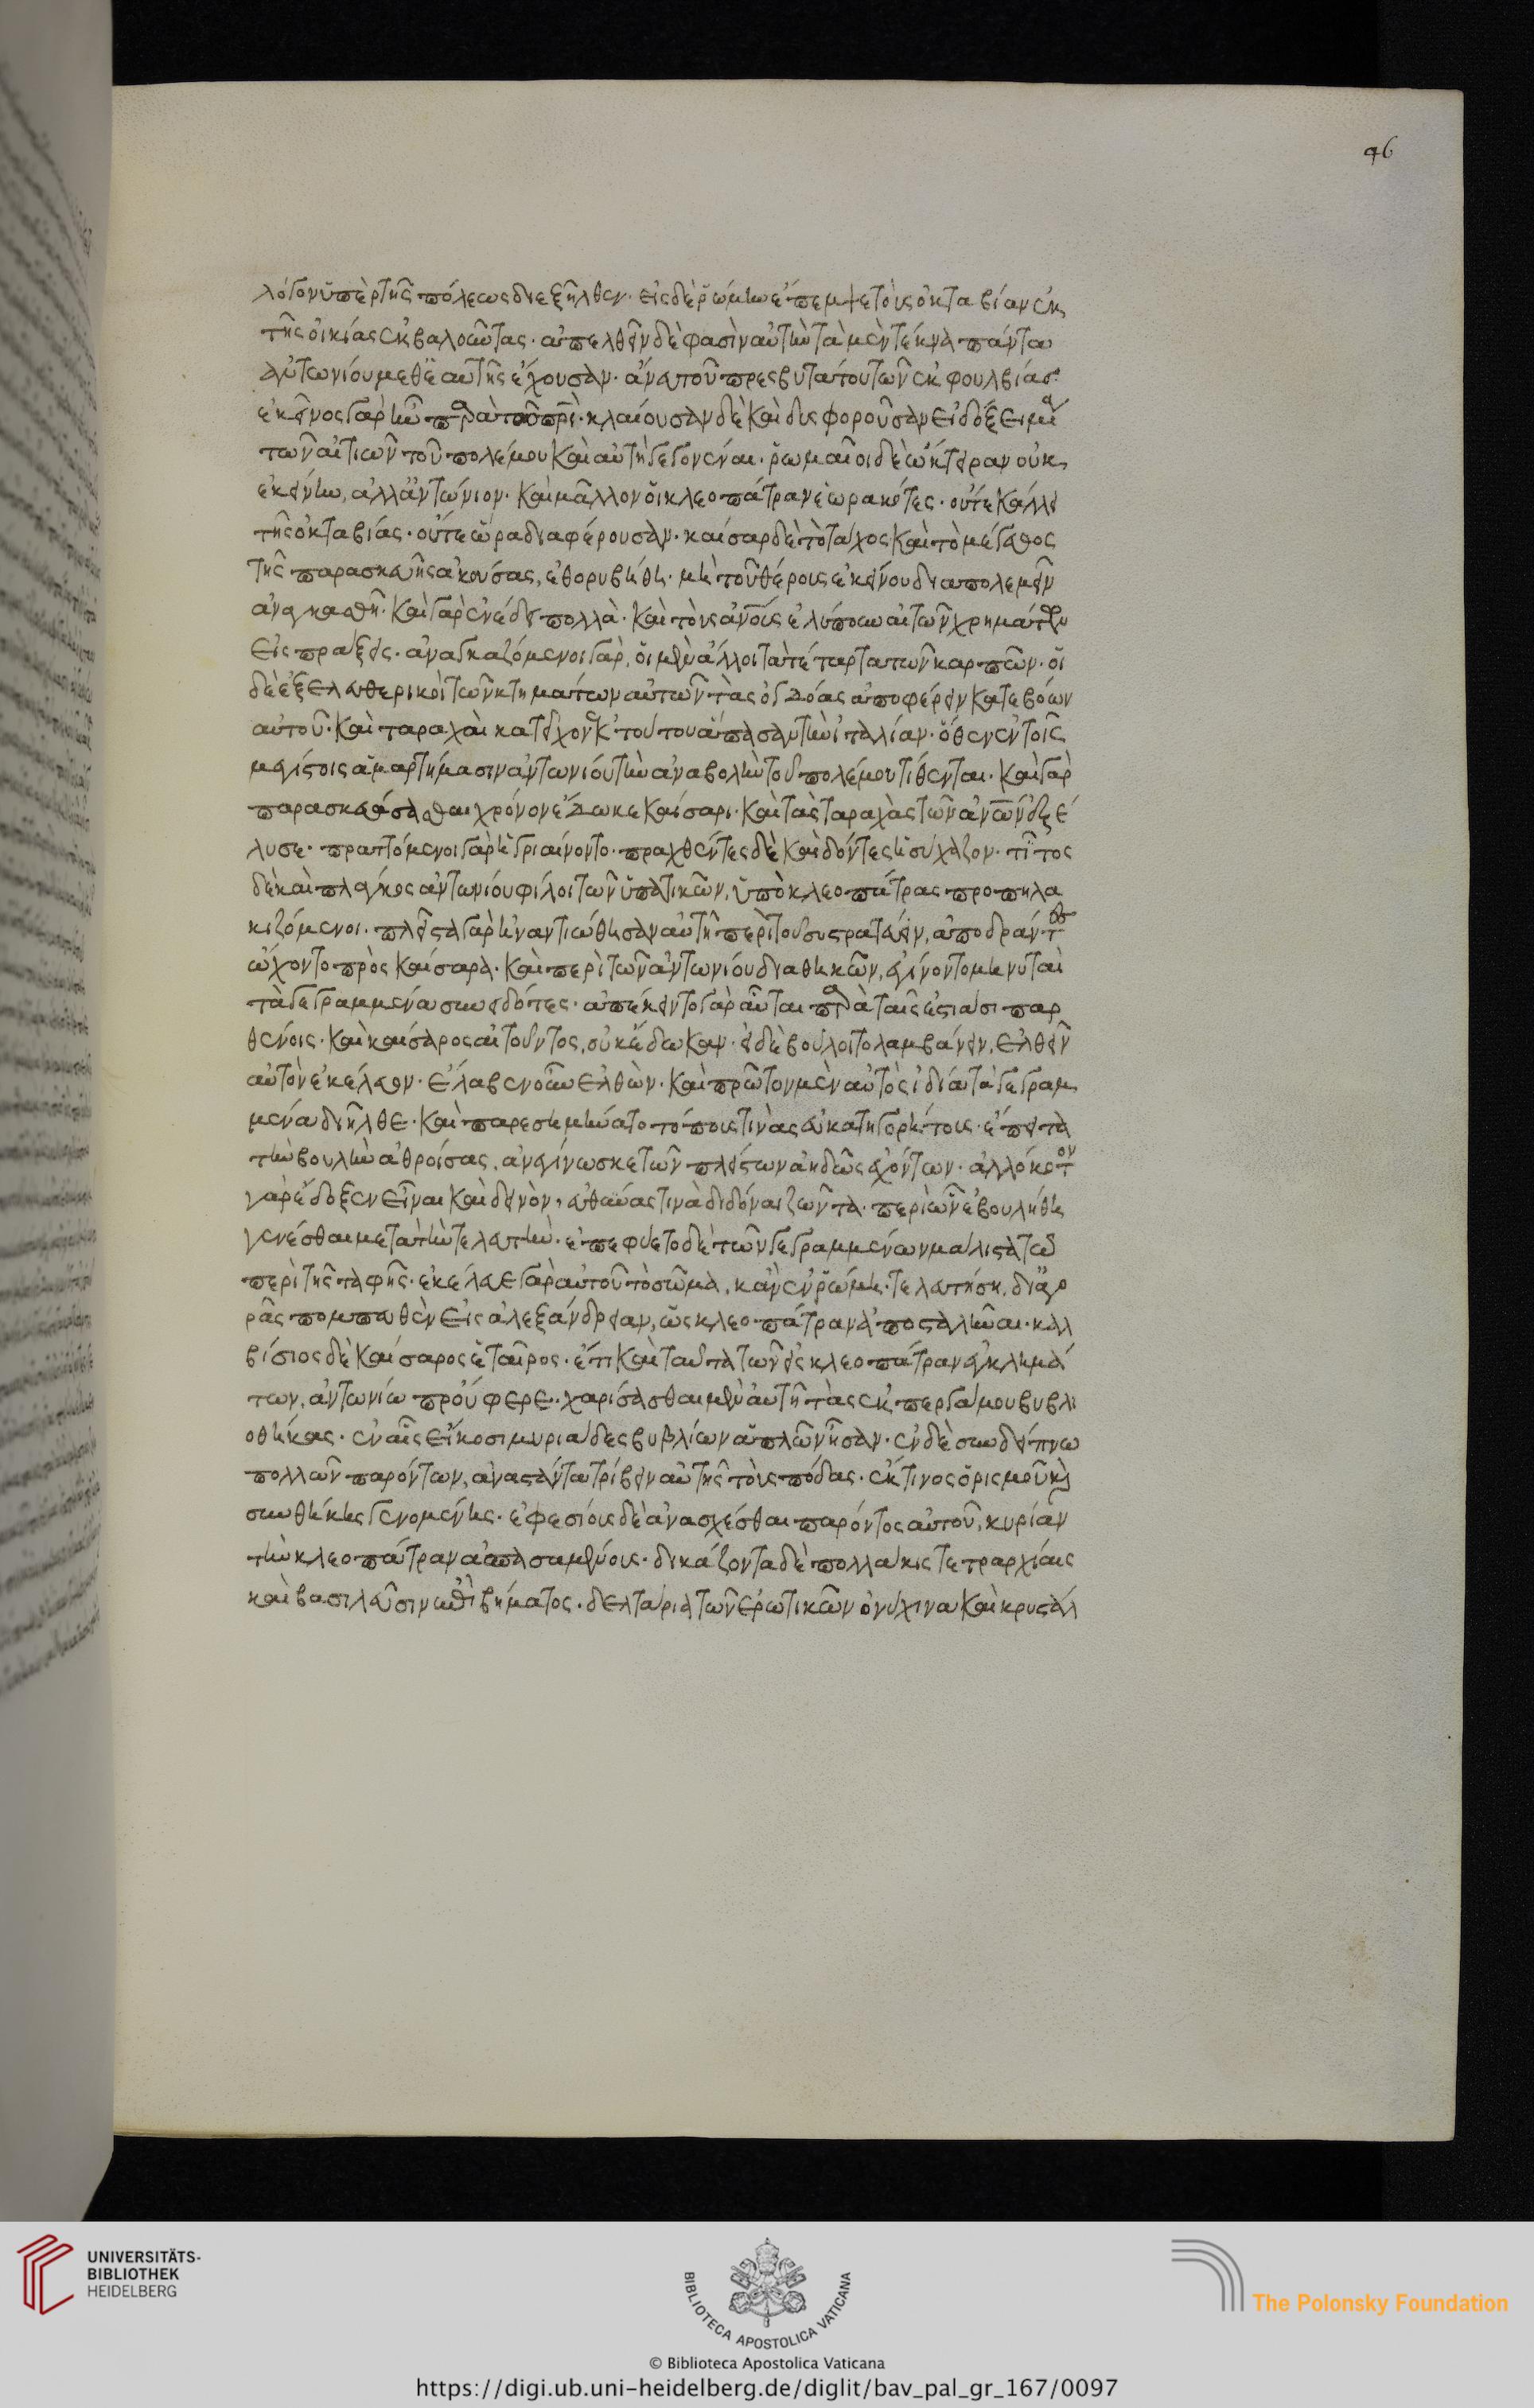 96
λόγον ὑπὲρ τῆς πόλεως διεξῆλθεν· εἰς δὲ ῥώμην ἔπεμψε τοὺς ὀκταβίαν ἐκ
τῆς οἰκίας ἐκβαλοῦντας· ἀπελθεῖν δὲ φασὶν αὐτὴν τὰ μὲν τέκνα πάντα
ἀντωνίου μεθ᾽ ἑαυτῆς ἔχουσαν· ἄνευ τοῦ πρεσβυτάτου τῶν ἐκ φουλβίας·
ἐκεῖνος γὰρ ἦν παρὰ τῷ πρὶ· κλαίουσαν δὲ καὶ δυσφοροῦσαν εἰ δόξει μία
τῶν αἰτιῶν τοῦ πολέμου καὶ αὐτὴ γεγονέναι· ῥωμαῖοι δὲ ὤκτειραν οὐκ
ἐκείνην, ἀλλ᾽ ἀντώνιον· καὶ μᾶλλον οἱ κλεοπάτραν ἑωρακότες· οὔτε κάλλει
τῆς ὀκταβίας· οὔτε ὥρα διαφέρουσαν· καίσαρ δὲ τὸ τάχος καὶ τὸ μέγεθος
τῆς παρασκευῆς ἀκούσας, ἐθορυβήθη· μὴ τοῦ θέρους ἐκείνου διαπολεμεῖν
ἀναγκασθῆ· καὶ γὰρ ἐνέδει πολλὰ· καὶ τοὺς ἀνους ἐλύπουν αἱ τῶν χρημάτων
εἰσπράξεις· ἀναγκαζόμενοι γὰρ, οἱ μὲν ἄλλοι τὰ τέταρτα τῶν καρπῶν· οἱ
δὲ ἐξελευθερικοὶ τῶν κτημάτων αὐτῶν τὰς ὀγδόας ἀποφέρειν κατεβόων
αὐτοῦ· καὶ ταραχαὶ κατεῖχον ἐκ τούτου ἅπασαν τὴν ἰταλίαν· ὅθεν ἐν τοῖς
μεγίστοις ἁμαρτήμασιν ἀντωνίου τὴν ἀναβολὴν τοῦ πολέμου τίθενται· καὶ γὰρ
παρασκευάσασθαι χρόνον ἔδωκε καίσαρι· καὶ τὰς ταραχὰς τῶν ἀνων ἐξέ
λυσε· πραττόμενοι γὰρ ἠγριαίνοντο· πραχθέντες δὲ καὶ δόντες ἡσύχαζον· τίτιος
δὲ καὶ πλάγκος ἀντωνίου φίλοι τῶν ὑπατικῶν, ὑπὸ κλεοπάτρας προπηλα
κιζόμενοι· πλεῖστα γὰρ ἠναντιώθησαν αὐτῆ περὶ τοῦ συστρατεύειν, ἀποδράντες
ὤχοντο πρὸς καίσαρα· καὶ περὶ τῶν ἀντωνίου διαθηκῶν, ἐγίνοντο μηνυταὶ
τὰ γεγραμμένα συνειδότες· ἀπέκειντο γὰρ αὗται παρὰ ταῖς ἑστιάσι παρ
θένοις· καὶ καίσαρος αἰτοῦντος, οὐκ ἔδωκαν· εἰ δὲ βούλοιτο λαμβάνειν, ἐλθεῖν
αὐτὸν ἐκέλευον· ἔλαβεν οὖν ἐλθὼν· καὶ πρῶτον μὲν αὐτὸς ἰδία τὰ γεγραμ
μένα διῆλθε· καὶ παρεσημήνατο τόπους τινὰς εὐκατηγορήτους· ἔπειτα
τὴν βουλὴν ἀθροίσας, ἀνεγίνωσκε τῶν πλείστων ἀηδῶς ἐχόντων· ἀλλόκοτον
γὰρ ἔδοξεν εἶναι καὶ δεινὸν, εὐθύνας τινὰ διδόναι ζῶντα· περὶ ὧν ἐβουλήθη
γενέσθαι μετὰ τὴν τελευτὴν· ἐπεφύετο δὲ τῶν γεγραμμένων μάλιστα τῶ
περὶ τῆς ταφῆς· ἐκέλευε γὰρ αὐτοῦ τὸ σῶμα, κἂν ἐν ῥώμη τελευτήση, δι᾽ ἀγο
ρᾶς πομπευθὲν εἰς ἀλεξάνδρειαν, ὡς κλεοπάτραν ἀποσταλῆναι· καλ
βίσιος δὲ καίσαρος ἑταῖρος· ἔτι καὶ ταῦτα τῶν εἰς κλεοπάτραν ἐγκλημά
των, ἀντωνίω προὔφερε· χαρίσασθαι μὲν αὐτῆ τὰς ἐκ περγάμου βυβλι
οθήκας· ἐν αἷς εἴκοσι μυριάδες βυβλίων ἁπλῶν ἦσαν· ἐν δὲ συνδείπνω
πολλῶν παρόντων, ἀναστάντα τρίβειν αὐτῆς τοὺς πόδας· ἔκ τινος ὁρισμοῦ καὶ
συνθήκης γενομένης· ἐφεσίους δὲ ἀνασχέσθαι παρόντος αὐτοῦ, κυρίαν
τὴν κλεοπάτραν ἀσπασαμένους· δικάζοντα δὲ πολλάκις τετράρχαις
καὶ βασιλεῦσιν ἐπὶ βήματος· δελτάρια τῶν ἐρωτικῶν ὀνύχινα καὶ κρυστάλ
UNIVERSITÄTS-
BIBLIOTHEK
HEIDELBERG
BIBLIOTECA APOSTOLICA VATICANA
The Polonsky Foundation
© Biblioteca Apostolica Vaticana
https://digi.ub.uni-heidelberg.de/diglit/bav_pal_gr_167/0097